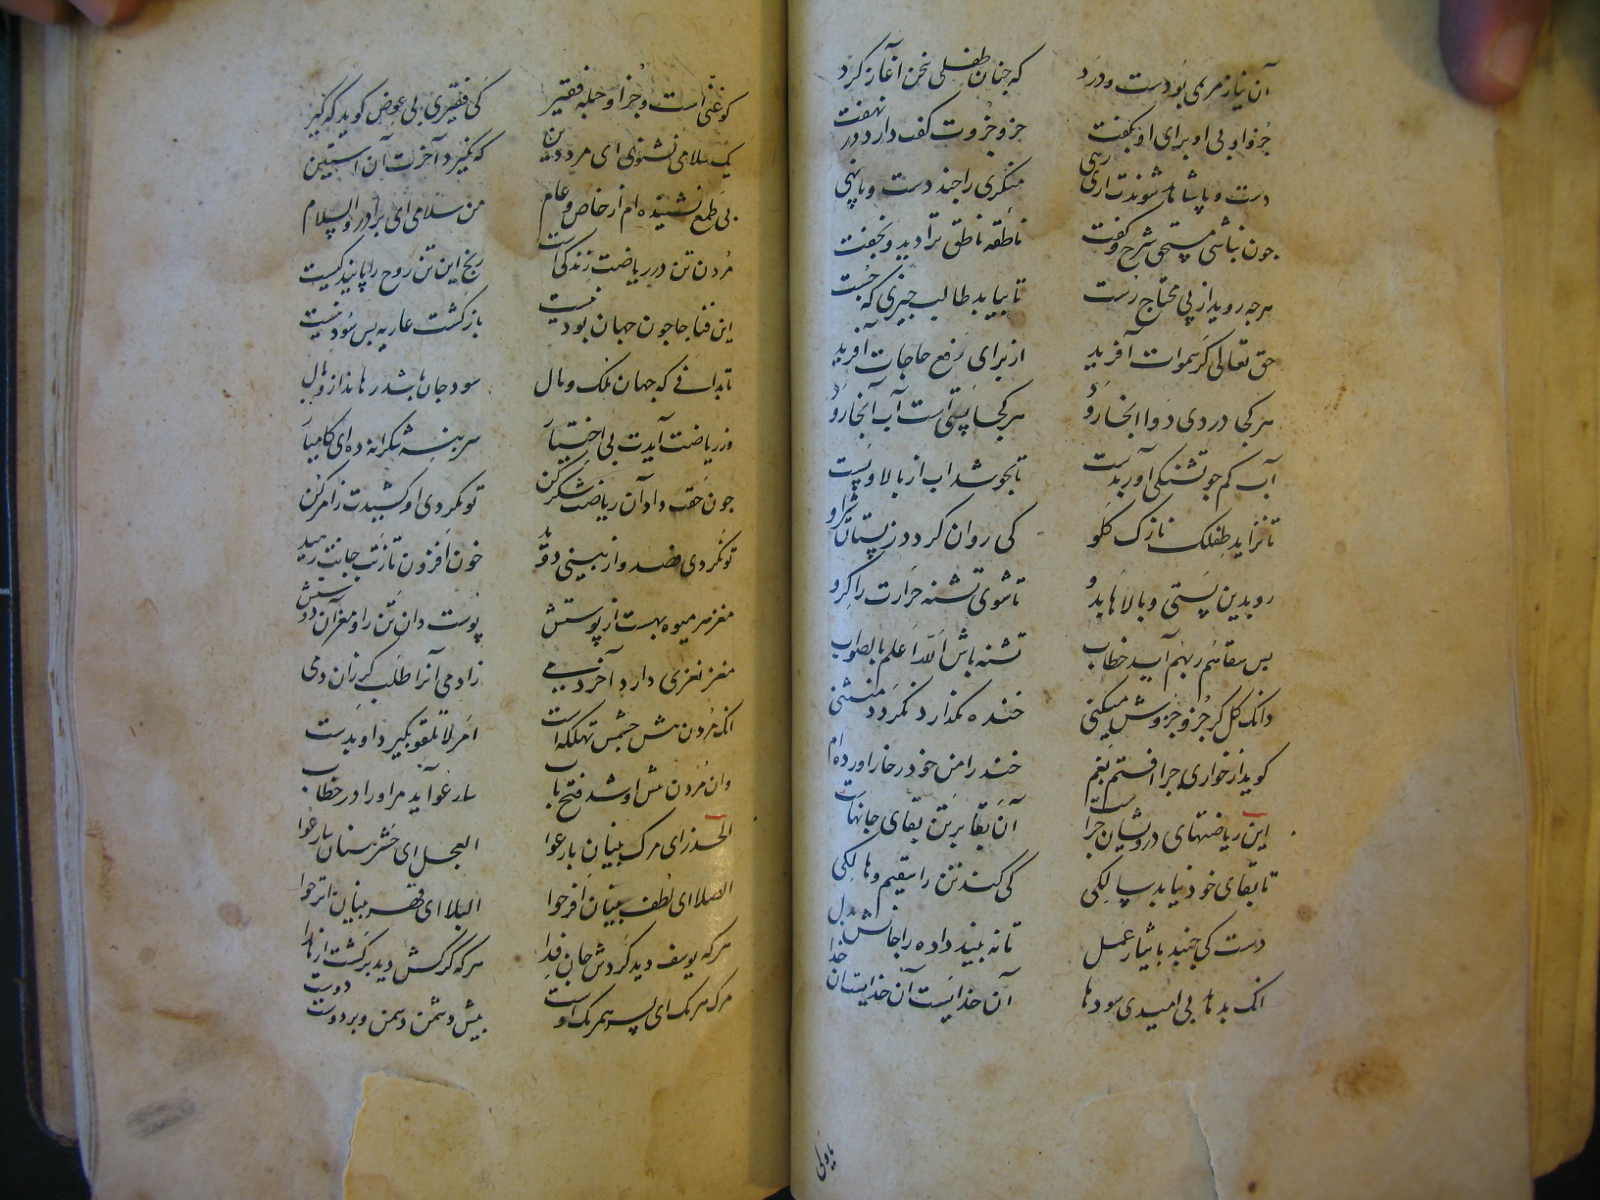 آن نیاز مریمی بودست و درد که چنان طفلی سخن آغاز کرد
جزو او بی او برای او بگفت جزو جزوت گفت دارد در نهفت
دست و پا شاهد شوندت ای رهی منکری را چند دست و پا نهی
چون نباشی مستحق شرح و گفت ناطقه ناطق ترا دید و بخفت
هرچه روید از پی محتاج رست تا بیابد طالب چیزی که جست
حق تعالی گر سموات آفرید از برای رفع حاجات آفرید
هر کجا دردی دوا آنجا رود هر کجا پستی است آب آنجا رود
آب کم جو تشنگی آور بدست تا بجوشد آب از بالا و پست
تا نزاید طفلک نازک گلو کی روان گردد ز پستان شیر او
رو بدین پستی و بالاها بدو تا شوی تشنه حرارت را گرو
پس سقاهم ربهم آید خطاب تشنه باش الله اعلم بالصواب
دانک کل گر جزو جزوش میکنی خنده نگذارد نگردد منثنی
گوید از خواری چرا افتم بغم خنده را من خود ز خار آورده‌ام
این ریاضتهای درویشان چراست آن بقا بر تن بقای جانهاست
تا بقای خود نیابد سالکی کی کند تن را سقیم و هالکی
دست کی جنبد بایثار عمل تا نه بیند داده را جانش بدل
آنک بدهد بی امیدی سودها آن خدایست آن خدایست آن خدا
کو غنی است و جز او جمله فقیر کی فقیری بی عوض گوید که گیر
یک سلامی نشنوی ای مرد دین که نگیرد آخرت آن آستین
بی طمع نشنیده‌ام از خاص و عام من سلامی ای برادر والسلام
مردن تن در ریاضت زندگی است رنج این تن روح را پایندگیست
تا بدانی که جهان ملک و مال سود جان باشد رهاند از وبال
ور ریاضت آیدت بی اختیار سر بنه شکرانه ده ای کامیار
چون حقت داد آن ریاضت شکر کن تو نکردی او کشیدت ز امر کن
مغز هر میوه بهست از پوستش پوست دان تن را و مغز آن دوستش
مغز نغزی دارد آخر آدمی
آنک مردن پیش چشمش تهلکه است امر لا تلقوا بگیرد او بدست
وان مردن پیش او شد فتح باب سارعوا آید مر او را در خطاب
الحذر ای مرگ بینان بارعوا العجل ای حشر بینان سارعوا
الصلا ای لطف بینان افرحوا البلا ای قهر بینان اترحوا
هرکه یوسف دید کردش جان فدا هرکه گرگش دید برگشت از هدا
مرگ هر یک ای پسر همرنگ اوست پیش دشمن دشمن و بر دوست دوست